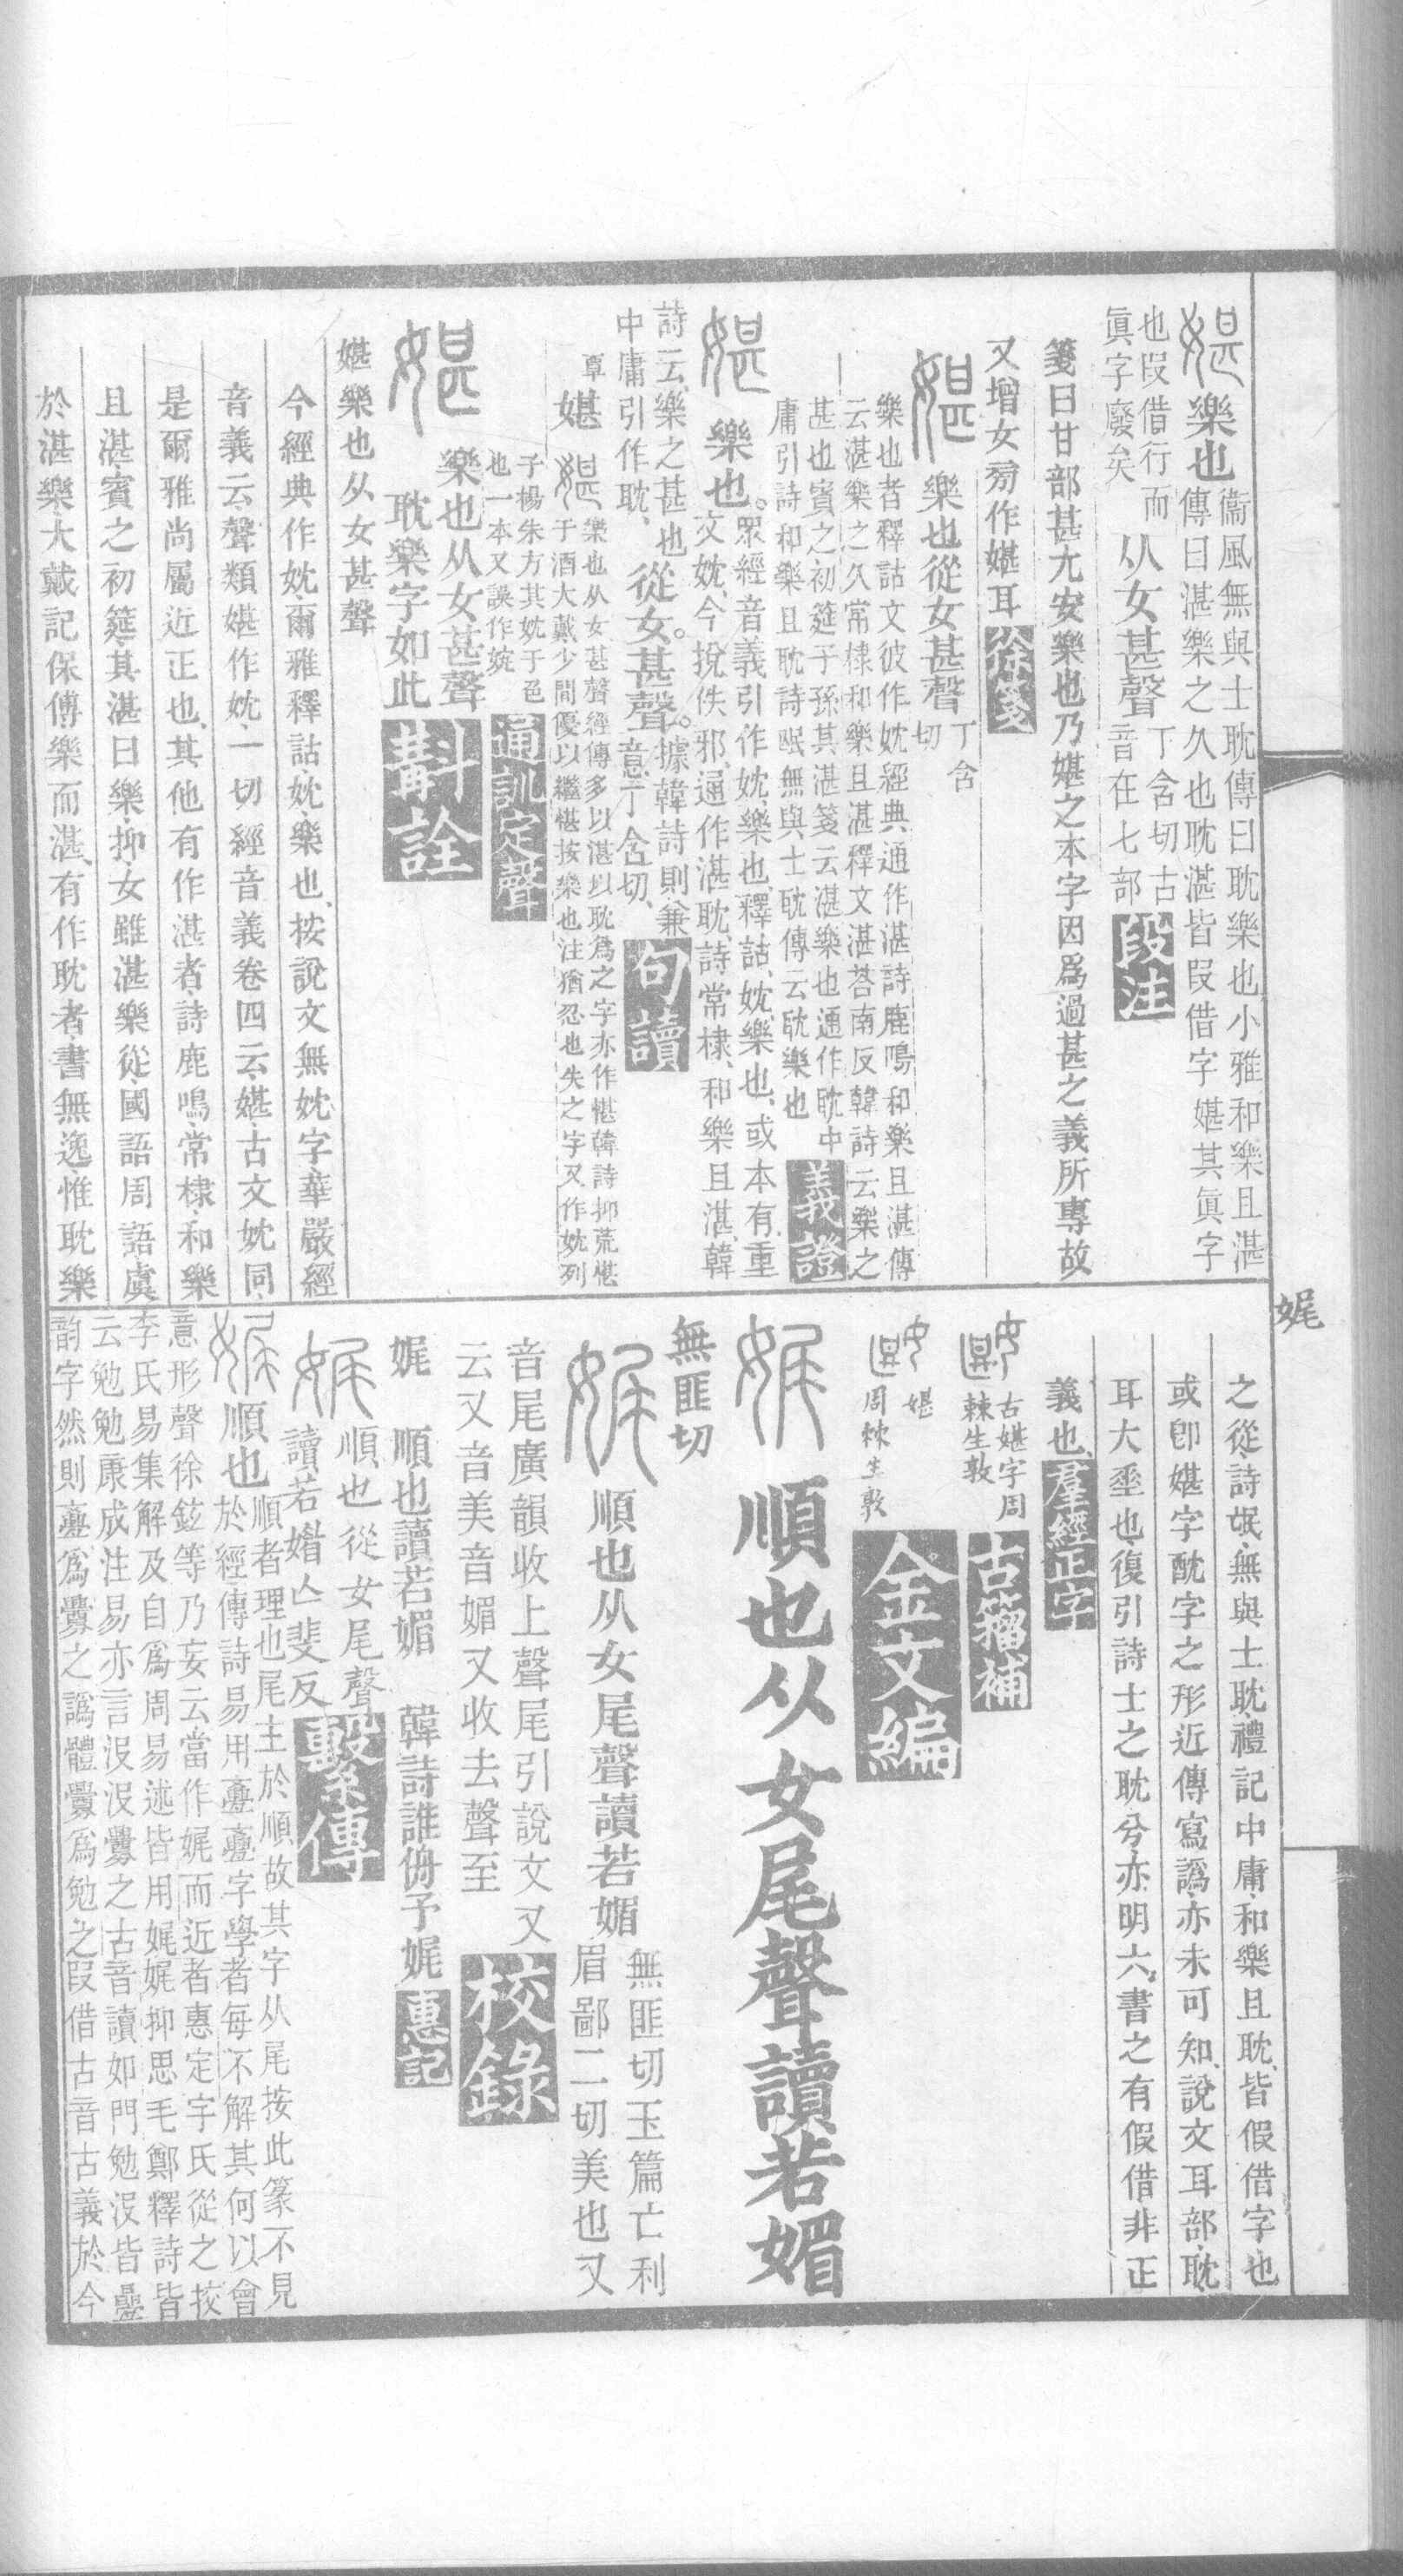 樂也
衞風無與士耽傳曰耽樂也小雅和樂且湛
傳曰湛樂之久也耽湛皆叚借字媅其眞字
也叚借行而
眞字廢矣
从女甚聲
丁含切古
音在七部
段注
箋曰甘部甚尤安樂也乃媅之本字因爲過甚之義所專故
又增女㫄作媅耳
徐箋
樂也從女甚聲
丁含
切
樂也者釋詁文彼作妉經典通作湛詩鹿鳴和樂且湛傳
云湛樂之久常棣和樂且湛釋文湛荅南反韓詩云樂之
甚也賓之初筵子孫其湛箋云湛樂也通作耽中
庸引詩和樂且耽詩氓無與士耽傳云耽樂也
義證
樂也。
眾經音義引作妉、樂也、釋詁、妉、樂也、或本有重
文妉、今挩佚邪、通作湛耽、詩常棣、和樂且湛、韓
詩云、樂之甚也
中庸引作耽、
從女。甚聲。
據韓詩則兼
意丁含切、
句讀
覃
媅
樂也从女甚聲經傳多以湛以耽爲之字亦作愖韓詩抑荒愖
于酒大戴少閒優以繼愖按樂也注猶忍也失之字又作妉列
子楊朱方其妉于色
也一本又誤作婉
通訓定聲
樂也从女甚聲
耽樂字如此
斠詮
媅樂也从女甚聲
今經典作妉、爾雅釋詁、妉、樂也、按說文無妉字、華嚴經
音義云、聲類媅作妉、一切經音義卷四云、媅、古文妉同、
是爾雅尚屬近正也、其他有作湛者、詩鹿鳴、常棣、和樂
且湛、賓之初筵、其湛曰樂、抑、女雖湛樂從、國語周語、虞
於湛樂、大戴記保傅樂而湛、有作耽者、書無逸、惟耽樂
娓
之從、詩氓、無與士耽、禮記中庸、和樂且耽、皆假借字也
或卽媅字酖字之形近傳寫譌、亦未可知、說文耳部、耽
耳大垂也、復引詩士之耽兮、亦明六書之有假借非正
義也、
羣經正字
古媅字周
棘生敦
古籀補
媅
周棘生敦
金文編
順也从女尾聲讀若媚
無匪切
順也从女尾聲讀若媚
無匪切玉篇亡利
眉鄙二切美也又
音尾廣韻收上聲尾引說文又
云又音美音媚又收去聲至
校錄
娓　順也讀若媚　韓詩誰侜予娓
惠記
順也從女尾聲
讀若媚亾斐反
繫傳
順也
順者理也尾主於順故其字从尾按此篆不見
於經傳詩易用亹亹字學者每不解其何以會
意形聲徐鉉等乃妄云當作娓而近者惠定宇氏從之挍
李氏易集解及自爲周易述皆用娓娓抑思毛鄭釋詩皆
云勉勉康成注易亦言沒沒釁之古音讀如門勉沒皆疊
韵字然則亹爲釁之譌體釁爲勉之叚借古音古義於今